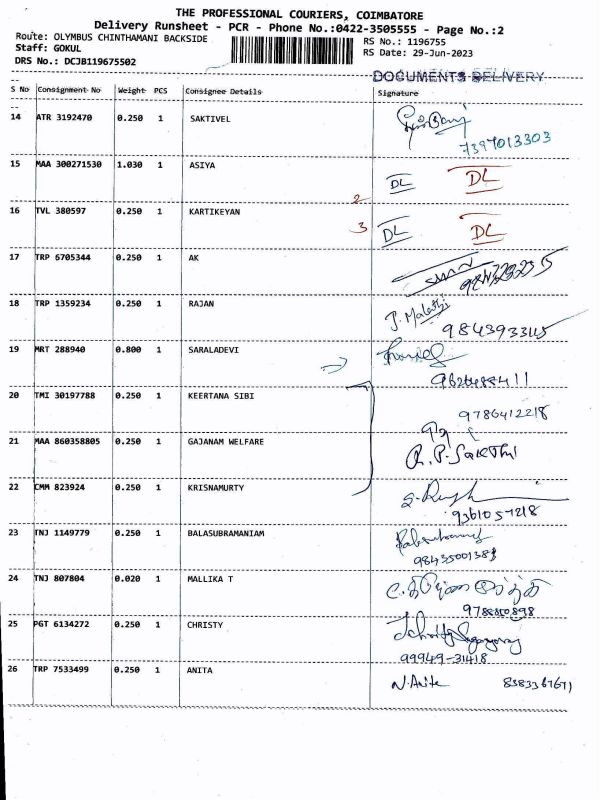 THE PROFESSIONAL COURIERS, COIMBATORE
Delivery Runsheet - PCR - Phone No.:0422-3505555 - Page No.:2
Route: OLYMBUS CHINTHAMANI BACKSIDE RS No.: 1196755
Staff: GOKUL RS Date: 29-Jun-2023
DRS No.: DCJB119675502
DOCUMENTS DELIVERY
S No Consignment No Weight PCS Consignee Details Signature
14 ATR 3192470 0.250 1 SAKTIVEL
7397013303
15 MAA 300271530 1.030 1 ASIYA
DL DL
2
16 TVL 380597 0.250 1 KARTIKEYAN
3 DL DL
17 TRP 6705344 0.250 1 AK
18 TRP 1359234 0.250 1 RAJAN
J. Malathi
9843933445
19 MRT 288940 0.800 1 SARALADEVI
9626488411
20 TMI 30197788 0.250 1 KEERTANA SIBI
9786412218
21 MAA 860358805 0.250 1 GAJANAM WELFARE
R.P. SAKTHI
22 CMM 823924 0.250 1 KRISNAMURTY
9361057218
23 TNJ 1149779 0.250 1 BALASUBRAMANIAM
24 TNJ 807804 0.020 1 MALLIKA T
25 PGT 6134272 0.250 1 CHRISTY
99949-31418
26 TRP 7533499 0.250 1 ANITA
N. Anita